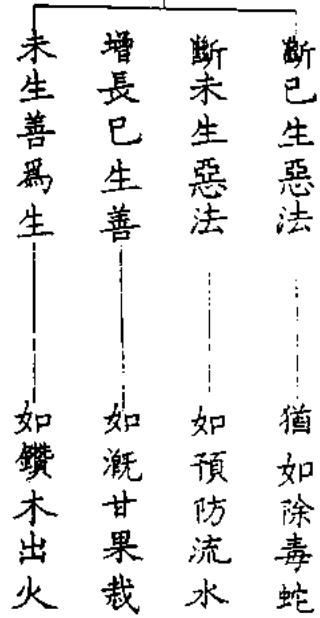 斷已生惡法
猶如除毒蛇
斷未生惡法
如預防流水
增長已生善
如溉甘果栽
未生善爲生
如鑽木出火